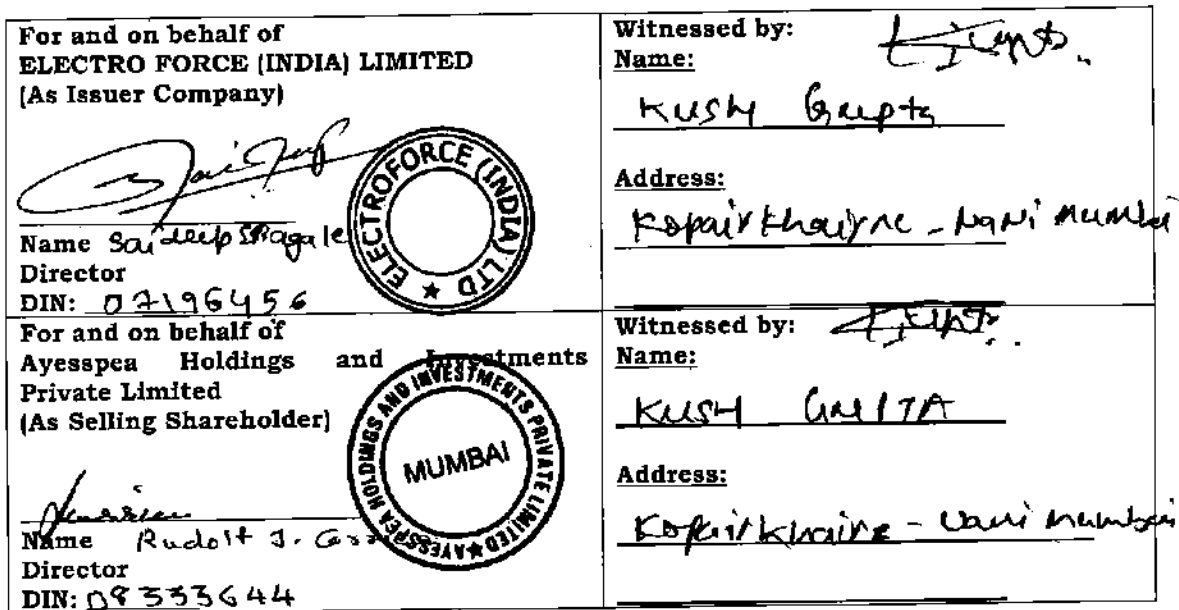 For and on behalf of
ELECTRO FORCE (INDIA) LIMITED
(As Issuer Company)
ELECTROFORCE (INDIA) LTD
Name Saideep
Director
DIN: 07196456
Witnessed by:
Name:
Kush Gupta
Address:
Kopair Khairne - Navi Mumbai
For and on behalf of
Ayesspea Holdings and Investments
Private Limited
(As Selling Shareholder)
AYESSPEA HOLDINGS AND INVESTMENTS PRIVATE LIMITED
MUMBAI
Name Rudolf J.
Director
DIN: 08333644
Witnessed by:
Name:
KUSH GUPTA
Address:
Kopair Khairne - Navi Mumbai